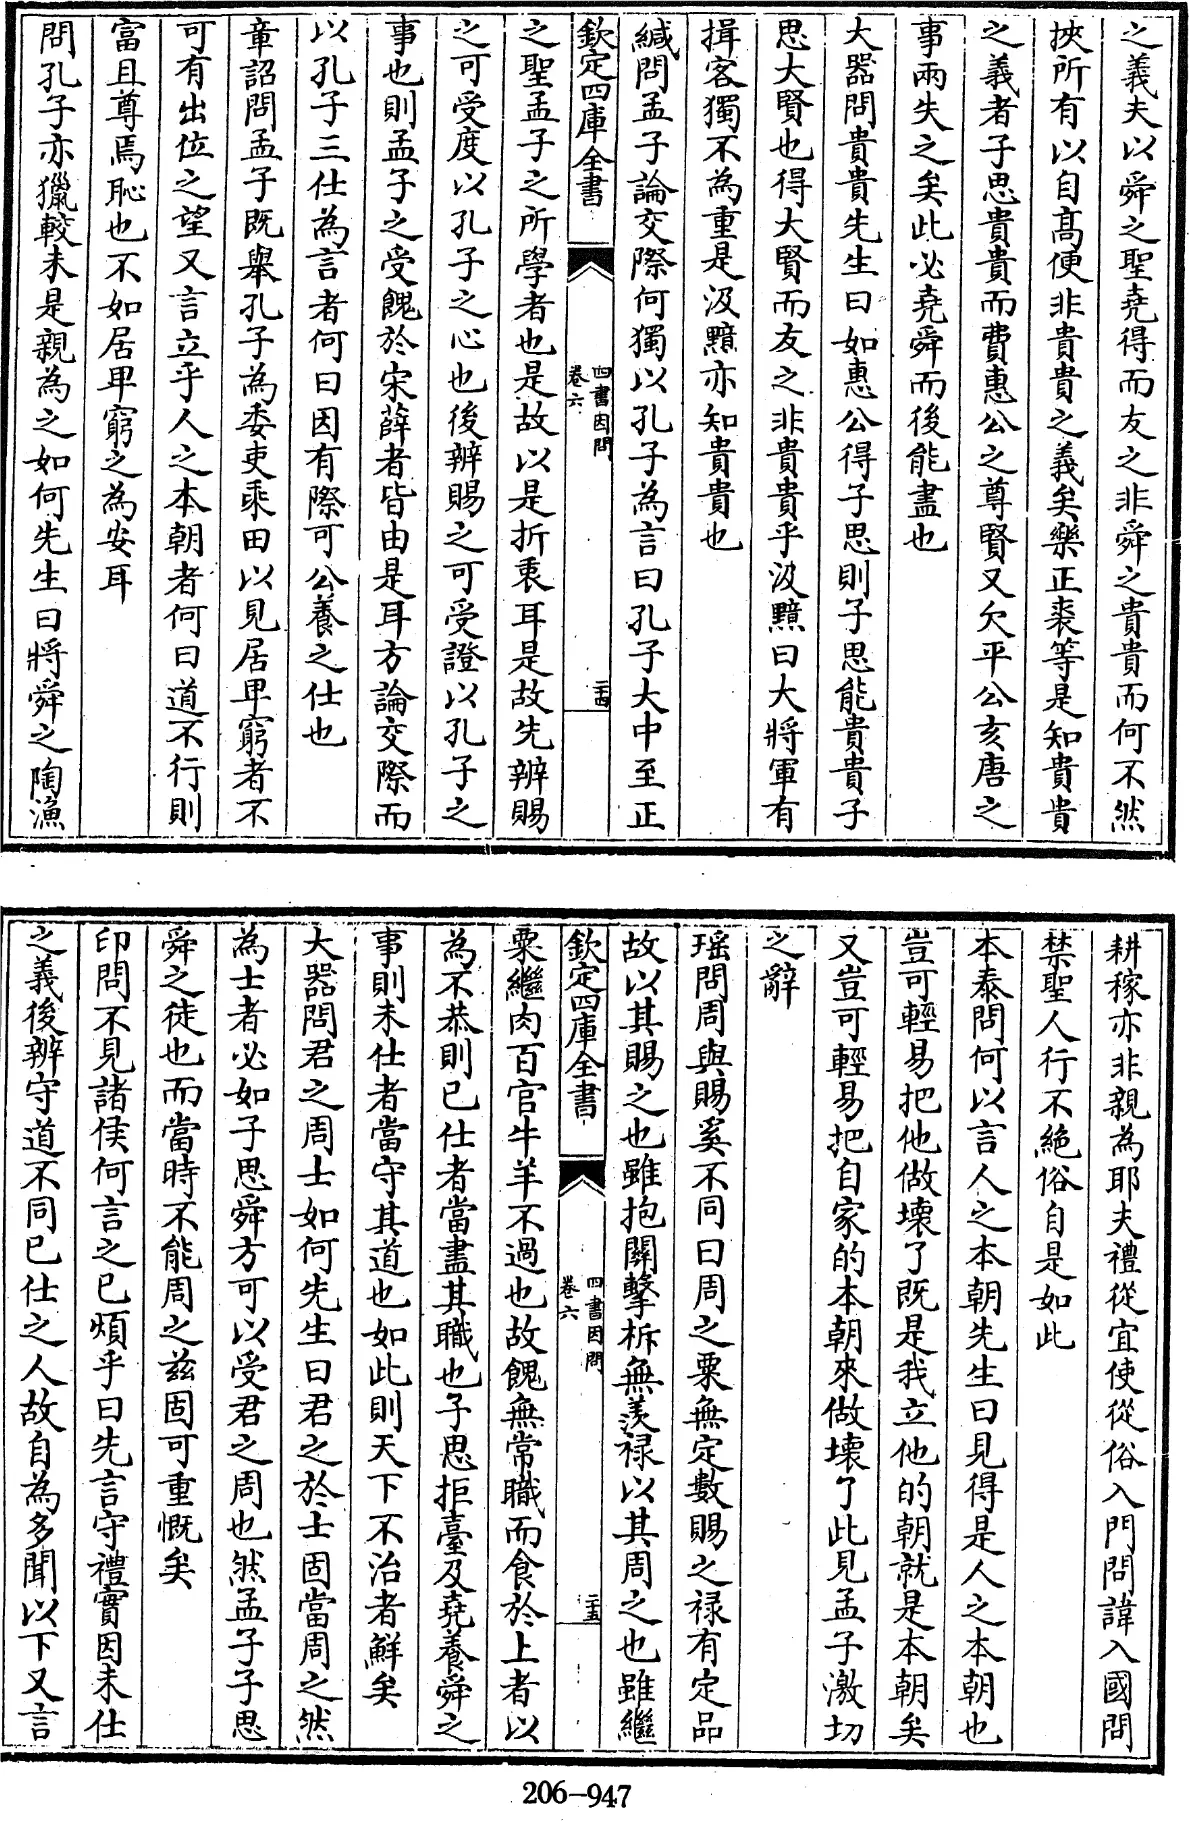 之義夫以舜之聖堯得而友之非舜之貴貴而何不然
挾所有以自高便非貴貴之義矣樂正裘等是知貴貴
之義者子思貴貴而費惠公之尊賢又欠平公亥唐之
事兩失之矣此必堯舜而後能盡也
大器問貴貴先生曰如惠公得子思則子思能貴貴子
思大賢也得大賢而友之非貴貴乎汲黯曰大將軍有
揖客獨不為重是汲黯亦知貴貴也
緘問孟子論交際何獨以孔子為言曰孔子大中至正
欽定四庫全書
四書因問
卷六
二十四
之聖孟子之所學者也是故以是折衷耳是故先辨賜
之可受度以孔子之心也後辨賜之可受證以孔子之
事也則孟子之受餽於宋薛者皆由是耳方論交際而
以孔子三仕為言者何曰因有際可公養之仕也
章詔問孟子既舉孔子為委吏乘田以見居卑窮者不
可有出位之望又言立乎人之本朝者何曰道不行則
富且尊焉恥也不如居卑窮之為安耳
問孔子亦獵較未是親為之如何先生曰將舜之陶漁
耕稼亦非親為耶夫禮從宜使從俗入門問諱入國問
禁聖人行不絕俗自是如此
本泰問何以言人之本朝先生曰見得是人之本朝也
豈可輕易把他做壞了既是我立他的朝就是本朝矣
又豈可輕易把自家的本朝來做壞了此見孟子激切
之辭
瑤問周與賜奚不同曰周之粟無定數賜之祿有定品
故以其賜之也雖抱關擊柝無羨祿以其周之也雖繼
欽定四庫全書
四書因問
卷六
二十五
粟繼肉百官牛羊不過也故餽無常職而食於上者以
為不恭則已仕者當盡其職也子思拒臺及堯養舜之
事則未仕者當守其道也如此則天下不治者鮮矣
大器問君之周士如何先生曰君之於士固當周之然
為士者必如子思舜方可以受君之周也然孟子子思
舜之徒也而當時不能周之茲固可重慨矣
印問不見諸侯何言之已煩乎曰先言守禮實因未仕
之義後辨守道不同已仕之人故自為多聞以下又言
206-947